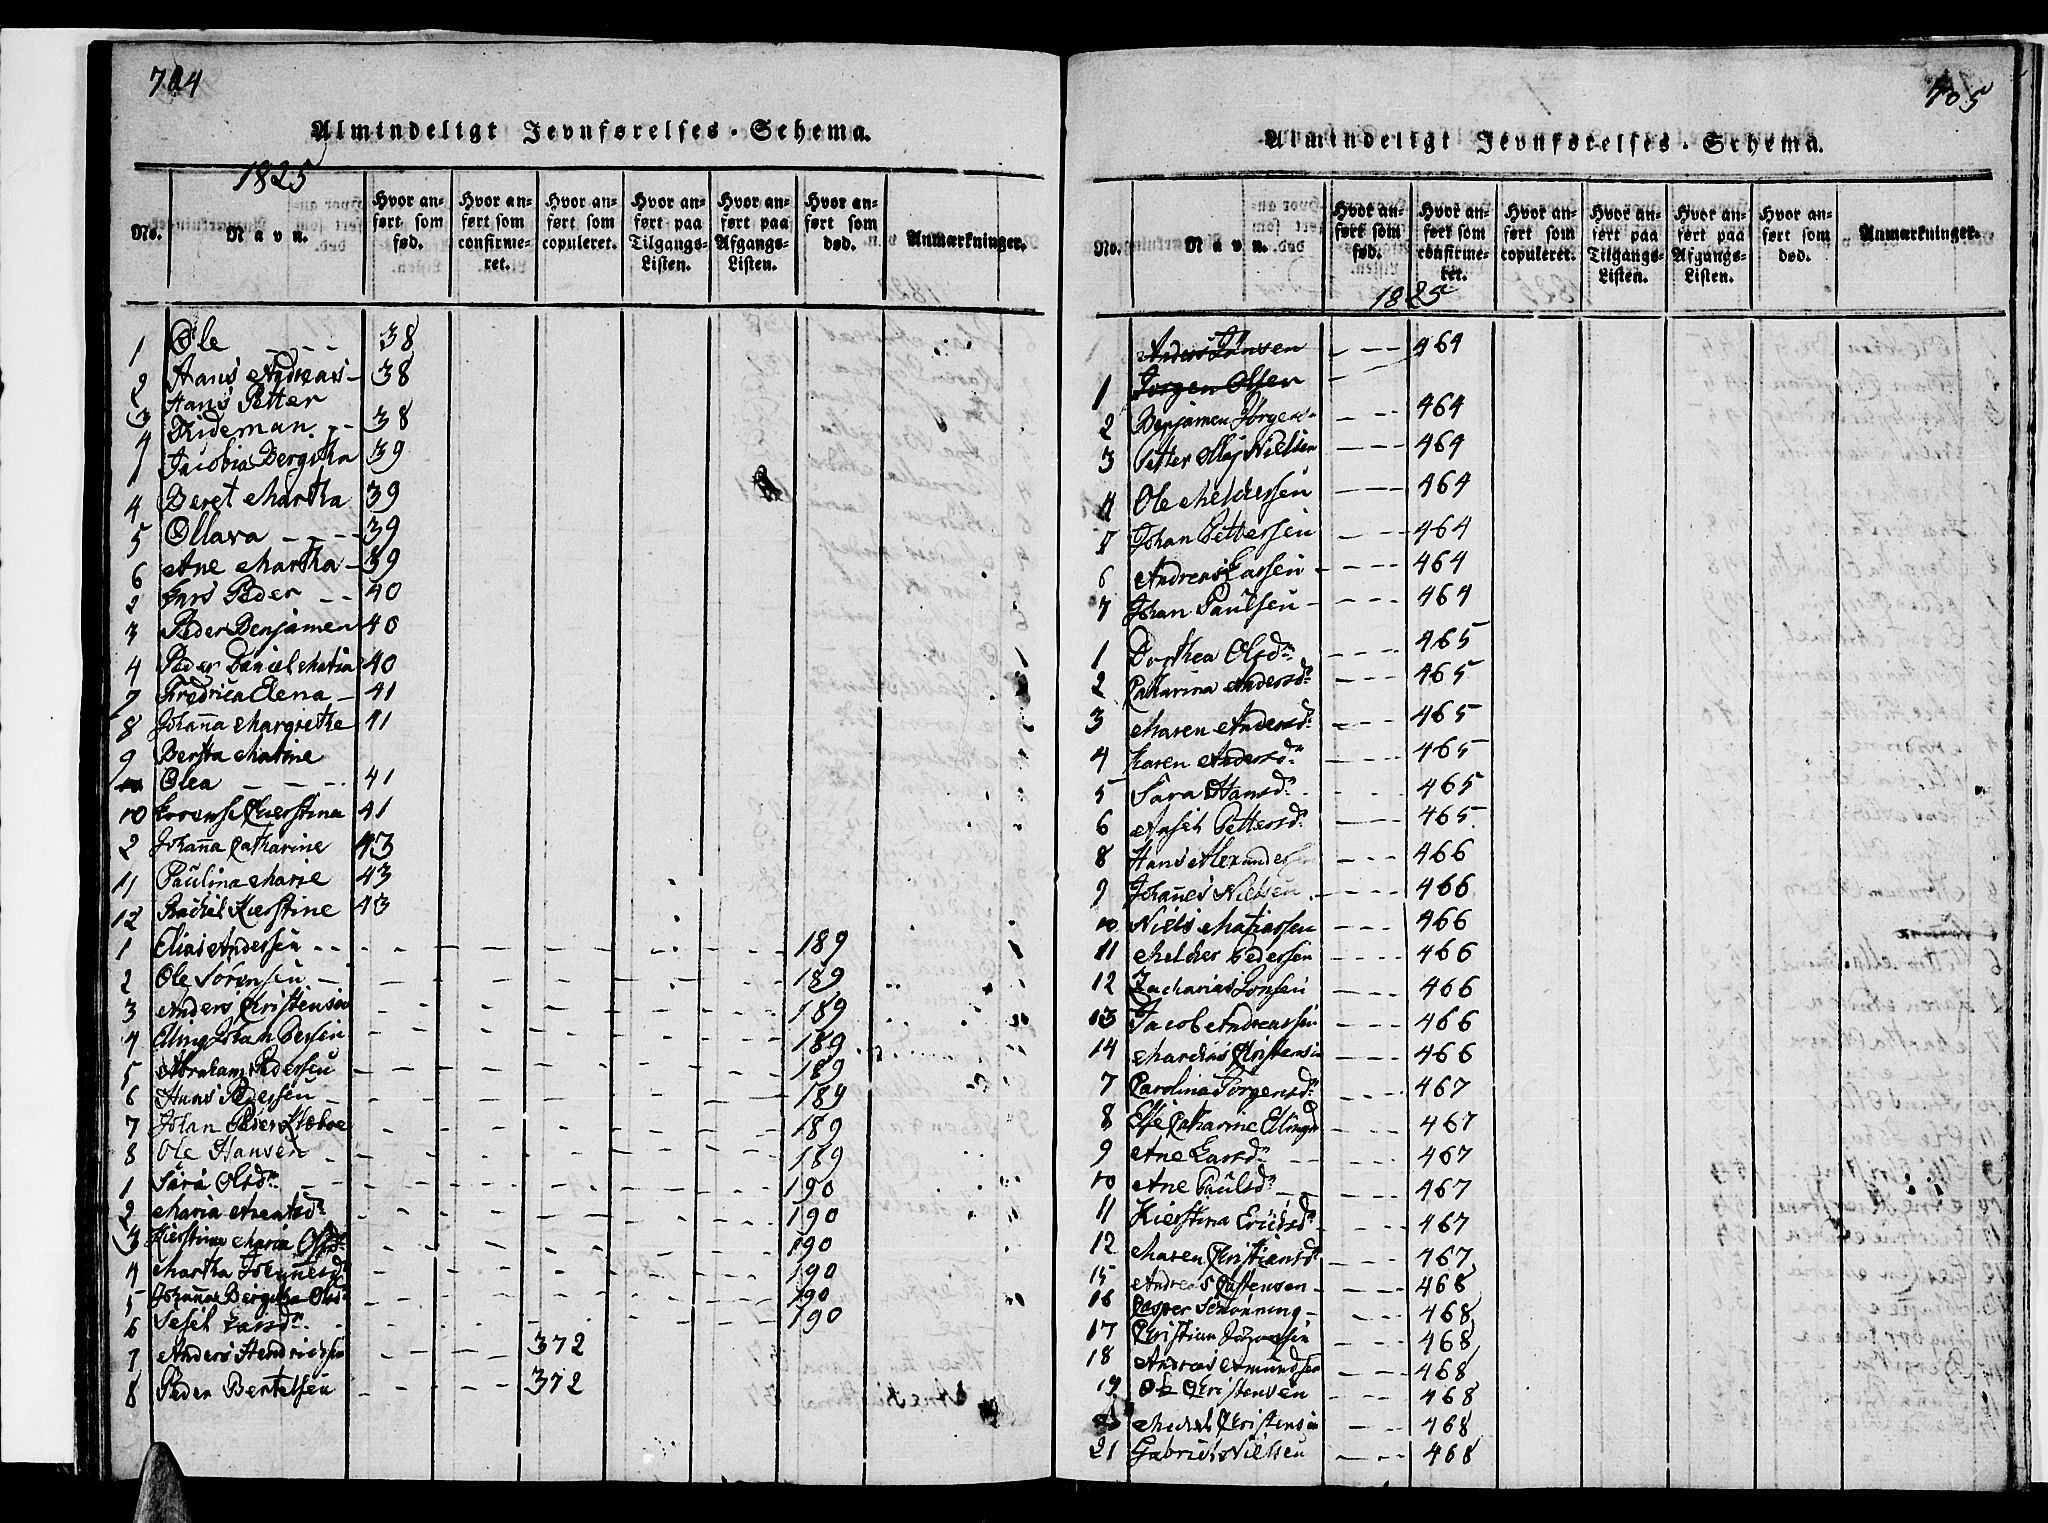 704
Almindeligt Jevnførelses-Schema.
1825
No. Navn. Hvor anført som fød. Hvor anført som confirmeret. Hvor anført som copuleret. Hvor anført paa Tilgangs-Listen. Hvor anført paa Afgangs-Listen. Hvor anført som død. Anmærkninger.
1 Ole 38
2 Hans Andreas 38
3 Hans Petter
4 Tideman 38
1 Jacobia Bergitha 39
4 Beret Martha 39
5 Ollava 39
6 Ane Martha 39
2 Lars Peder 40
3 Peder Benjamen 40
4 Peder Daniel Matia 40
7 Fredrica Elena 41
8 Johanna Margrethe 41
9 Bersta Matine
Olea 41
10 Lorense Kierstina 41
2 Johanna Catharine 43
11 Paulina Marie 43
12 Rachel Kierstine 43
1 Elias Andersen 189
2 Ole Sørensen 189
3 Anders Christensen 189
4 Elling Johan 189
5 Abraham Pedersen 189
6 Hans Pedersen 189
7 Johan Peder Klæboe 189
8 Ole Hansen 189
1 Sara Olsdr 190
2 Maria Arentsdr 190
3 Kierstina Maria Olsdr 190
4 Martha Johannesdr 190
5 Johanna Bergitha Olsdr 190
6 Sesel Larsdr 190
7 Anders Hendricksen 372
8 Peder Bertelsen 372
705
Almindeligt Jevnførelses-Schema.
No. Navn. Hvor anført som fød. Hvor anført som confirmeret. Hvor anført som copuleret. Hvor anført paa Tilgangs-Listen. Hvor anført paa Afgangs-Listen. Hvor anført som død. Anmærkninger.
1825
Anders Jansen 464
1 Jørgen Olsen
2 Benjamen Jørgens 464
3 Petter Olaj Nielsen 464
4 Ole Melchersen 464
5 Johan Pettersen 464
6 Andreas Larsen 464
7 Johan Paulsen 464
1 Dorthea Olsdr 465
2 Catharina Andersdr 465
3 Maren Andersdr 465
4 Karen Andersdr 465
5 Sara Hansdr 465
6 Ansel Pettersdr 465
8 Hans Alexandersen 466
9 Johannes Nielsen 466
10 Niels Matiassen 466
11 Melcher Pedersen 466
12 Zacharias Jonsen 466
13 Jacob Andreassen 466
14 Marcus Christensen 466
7 Carolina Jørgensdr 467
8 Else Catharine Ellingsdr 467
9 Ane Larsdr 467
10 Ane Paulsdr 467
11 Kierstina Ericksdr 467
12 Maren Christiansdr 467
15 Andreas Castensen 468
16 Casper Schønning 468
17 Christian Johansen 468
18 Andreas Amundsen 468
19 Ole Christensen 468
20 Michel Christensen 468
21 Gabriel Nielsen 468